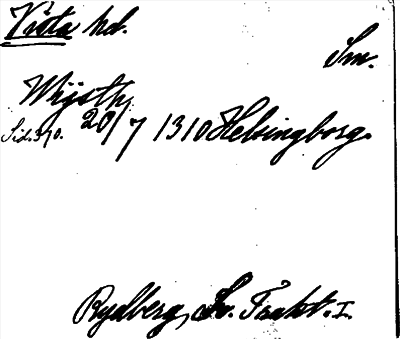 Vista hd.
Sm.
Wijsth,
Sid. 370. 20/7 1310 Helsingborg.
Rydberg, Sv. Trakt. I.